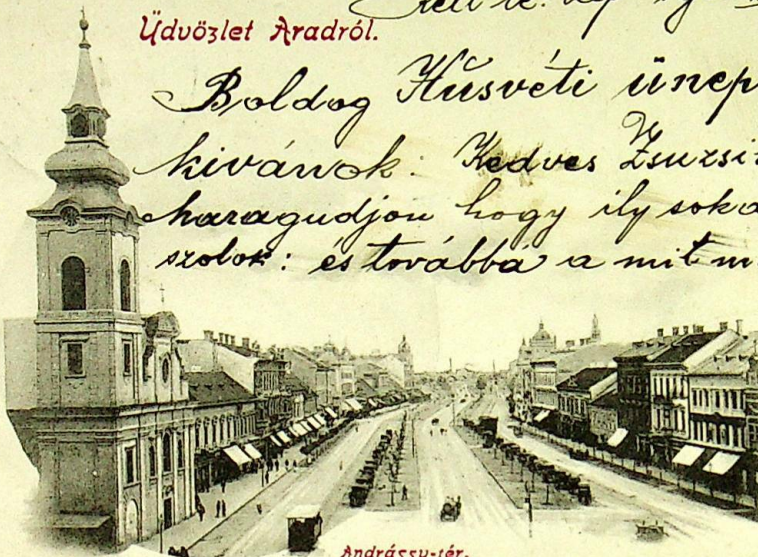 Üdvözlet Aradról.
Boldog Húsvéti ünep
kivánok: Kedves Zsuzsi
haragudjon hogy ily soka
szolok: és továbbá a mit m
Andrássy-tér.